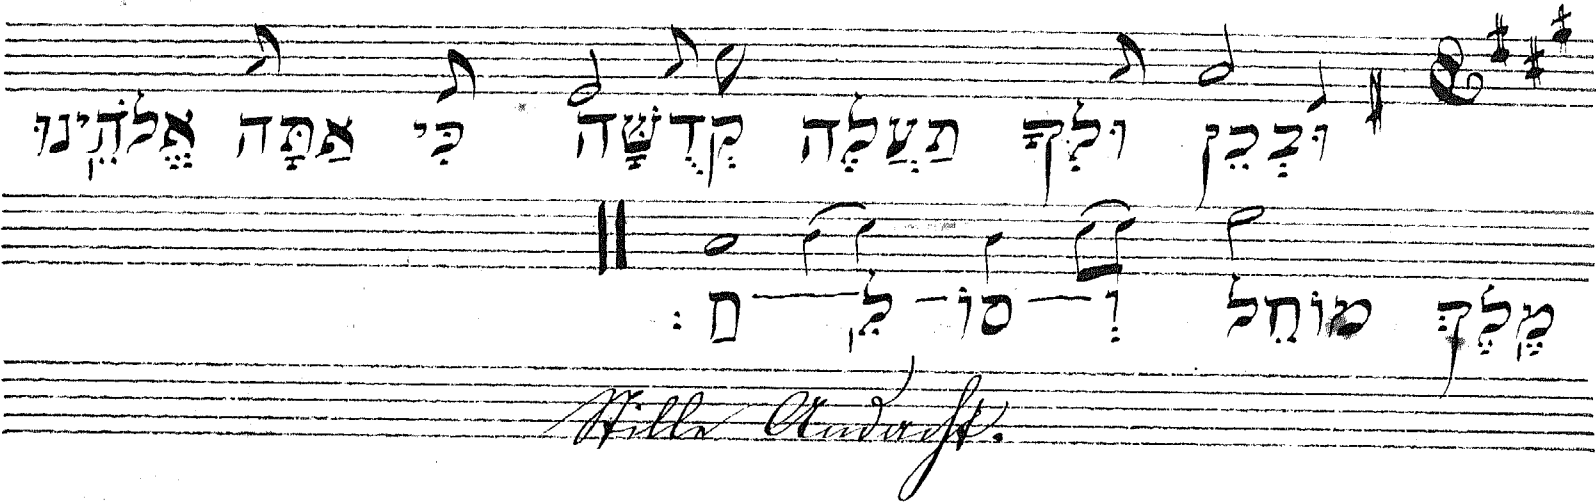 וּבְכֵן וּלְךָ תַעֲלֶה קְדֻשָּׁה כִּי אַתָּה אֱלֹהֵינוּ
מֶלֶךְ מוֹחֵל וְ — סוֹ — לֵ — חַ :
Stille Andacht.